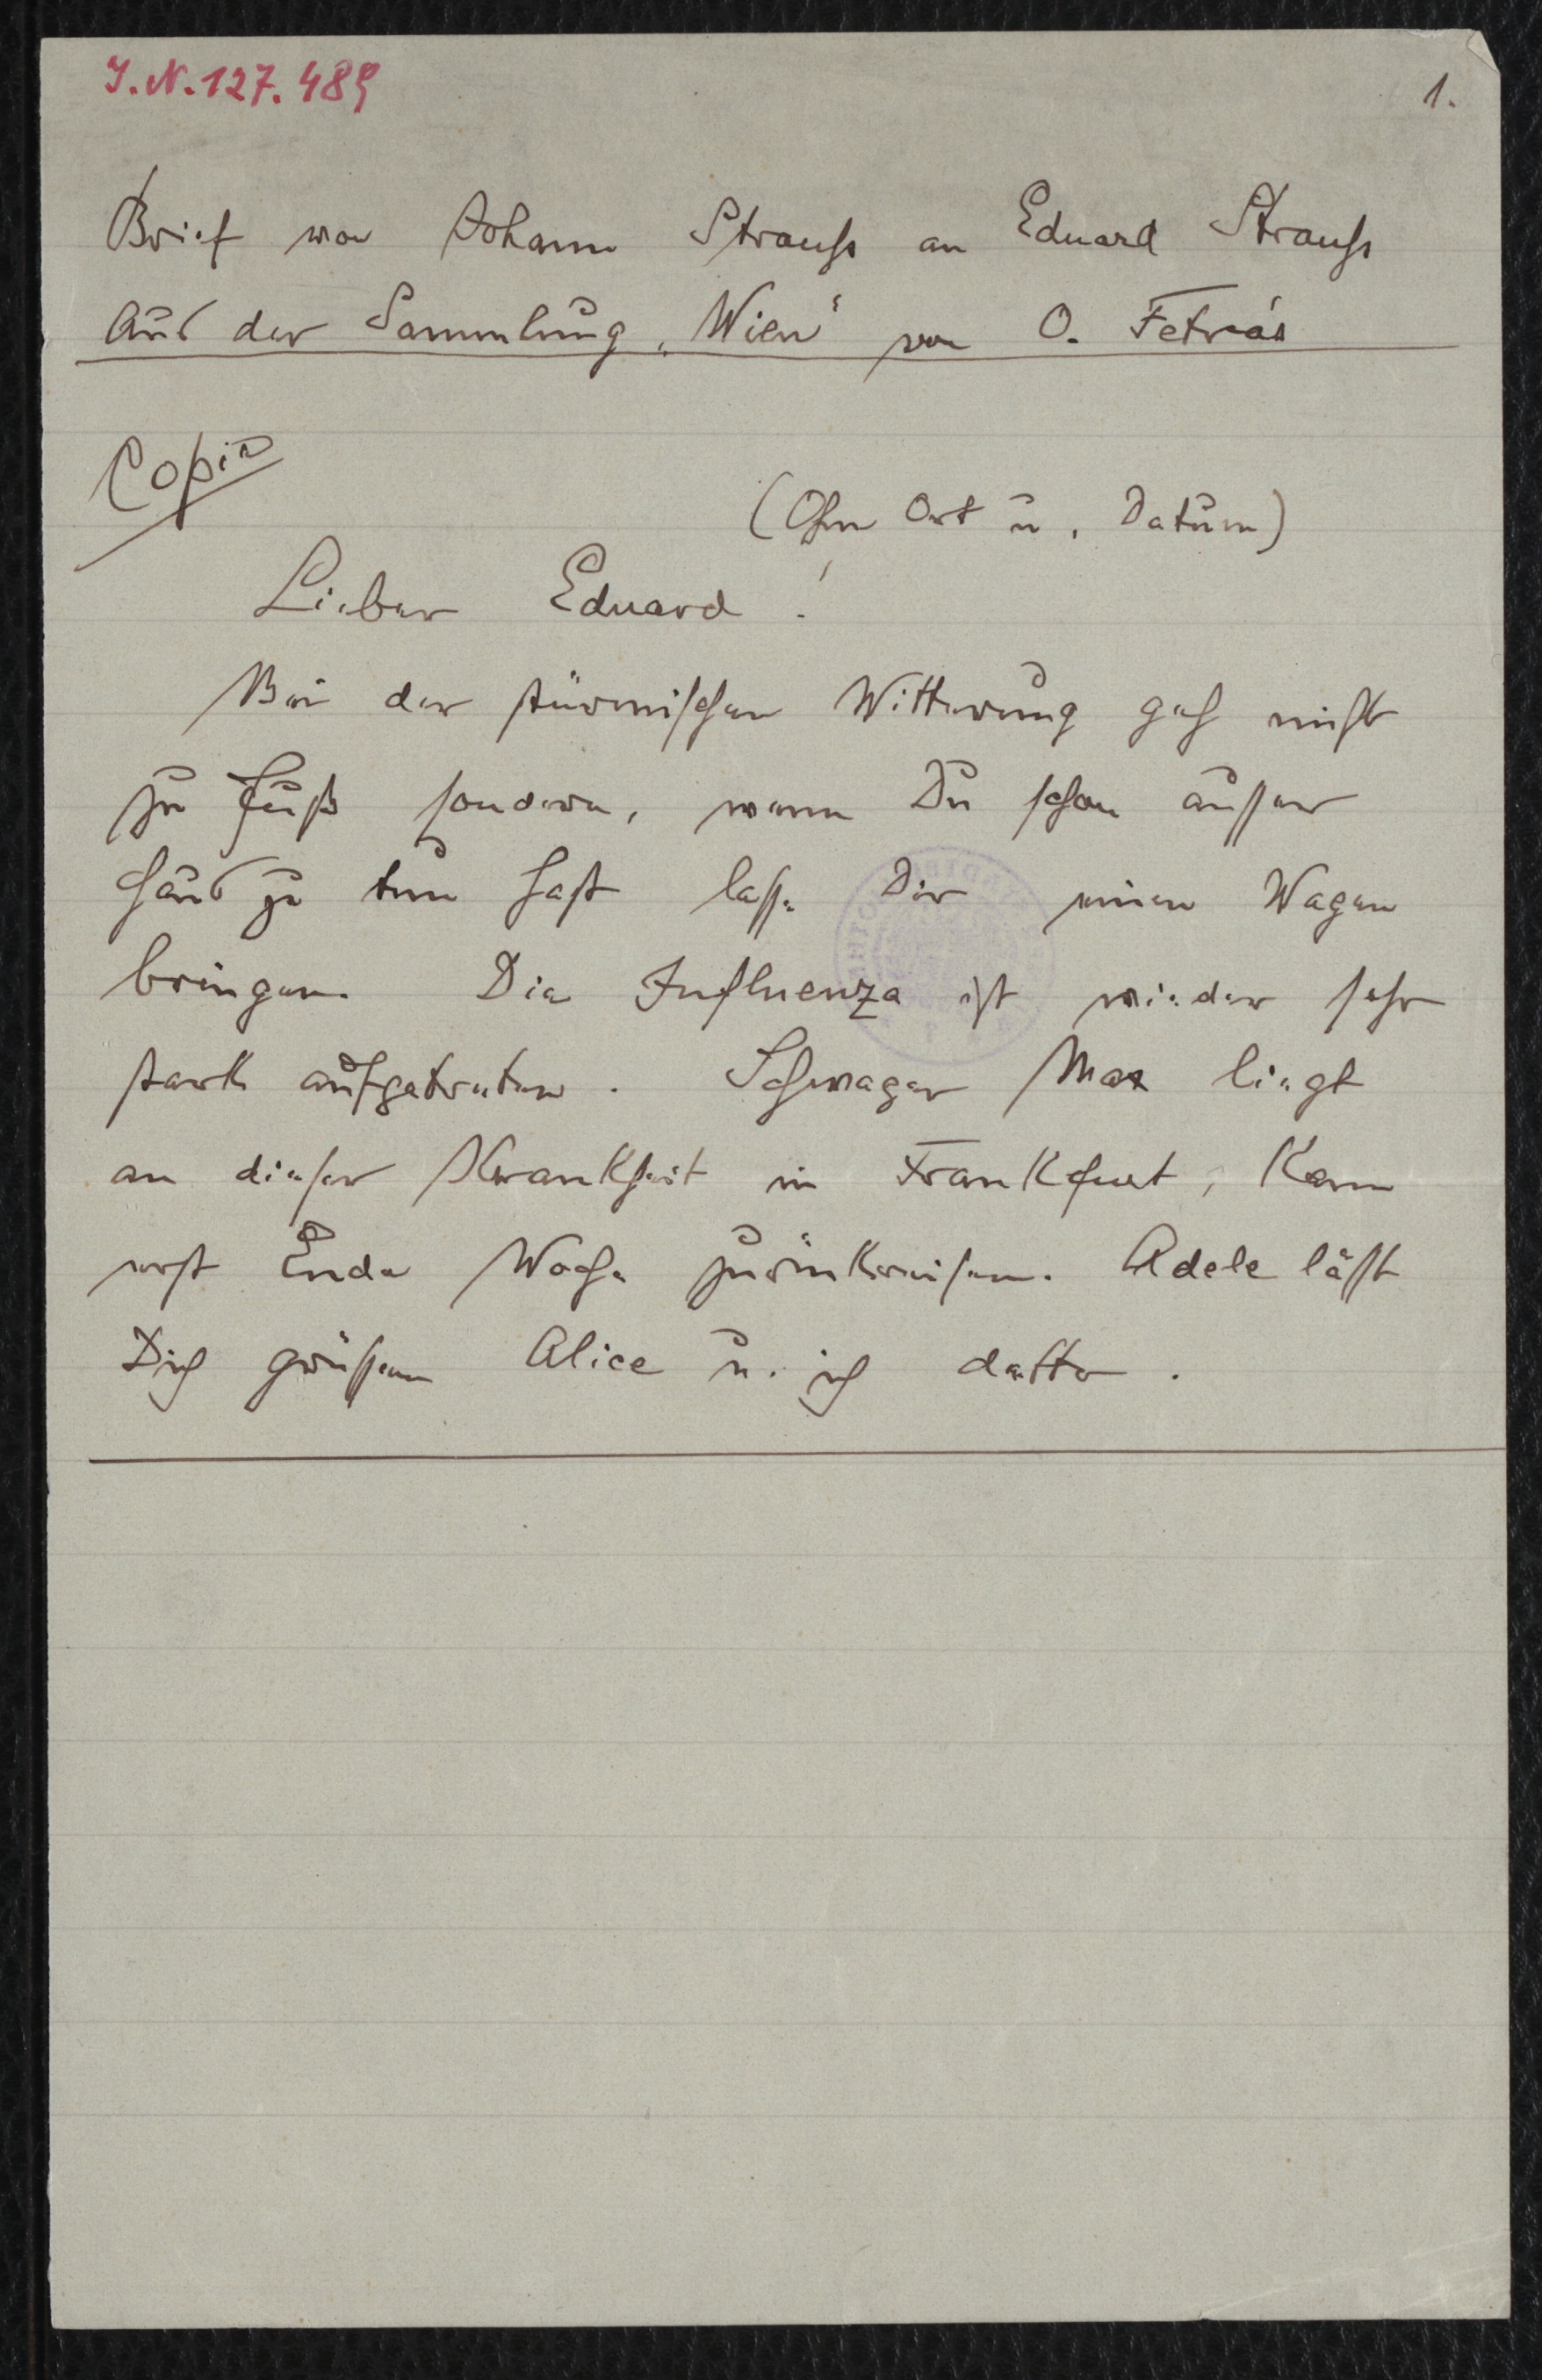 I.N. 127.489
1.
Brief von Johann Strauss an Eduard Strauss
Aus der Sammlung „Wien“ von O. Fetrás
Copie
(Ohne Ort u. Datum)
Lieber Eduard!
Bei der stürmischen Witterung geh nicht
zu Fuß sondern, wenn Du schon ausser
Haus zu tun hast lasse Dir einen Wagen
bringen. Die Influenza ist wieder sehr
stark aufgetreten. Schwager Max liegt
an dieser Krankheit in Frankfurt, kann
erst Ende Woche zurükreisen. Adele lässt
Dich grüssen Alice u. ich detto.